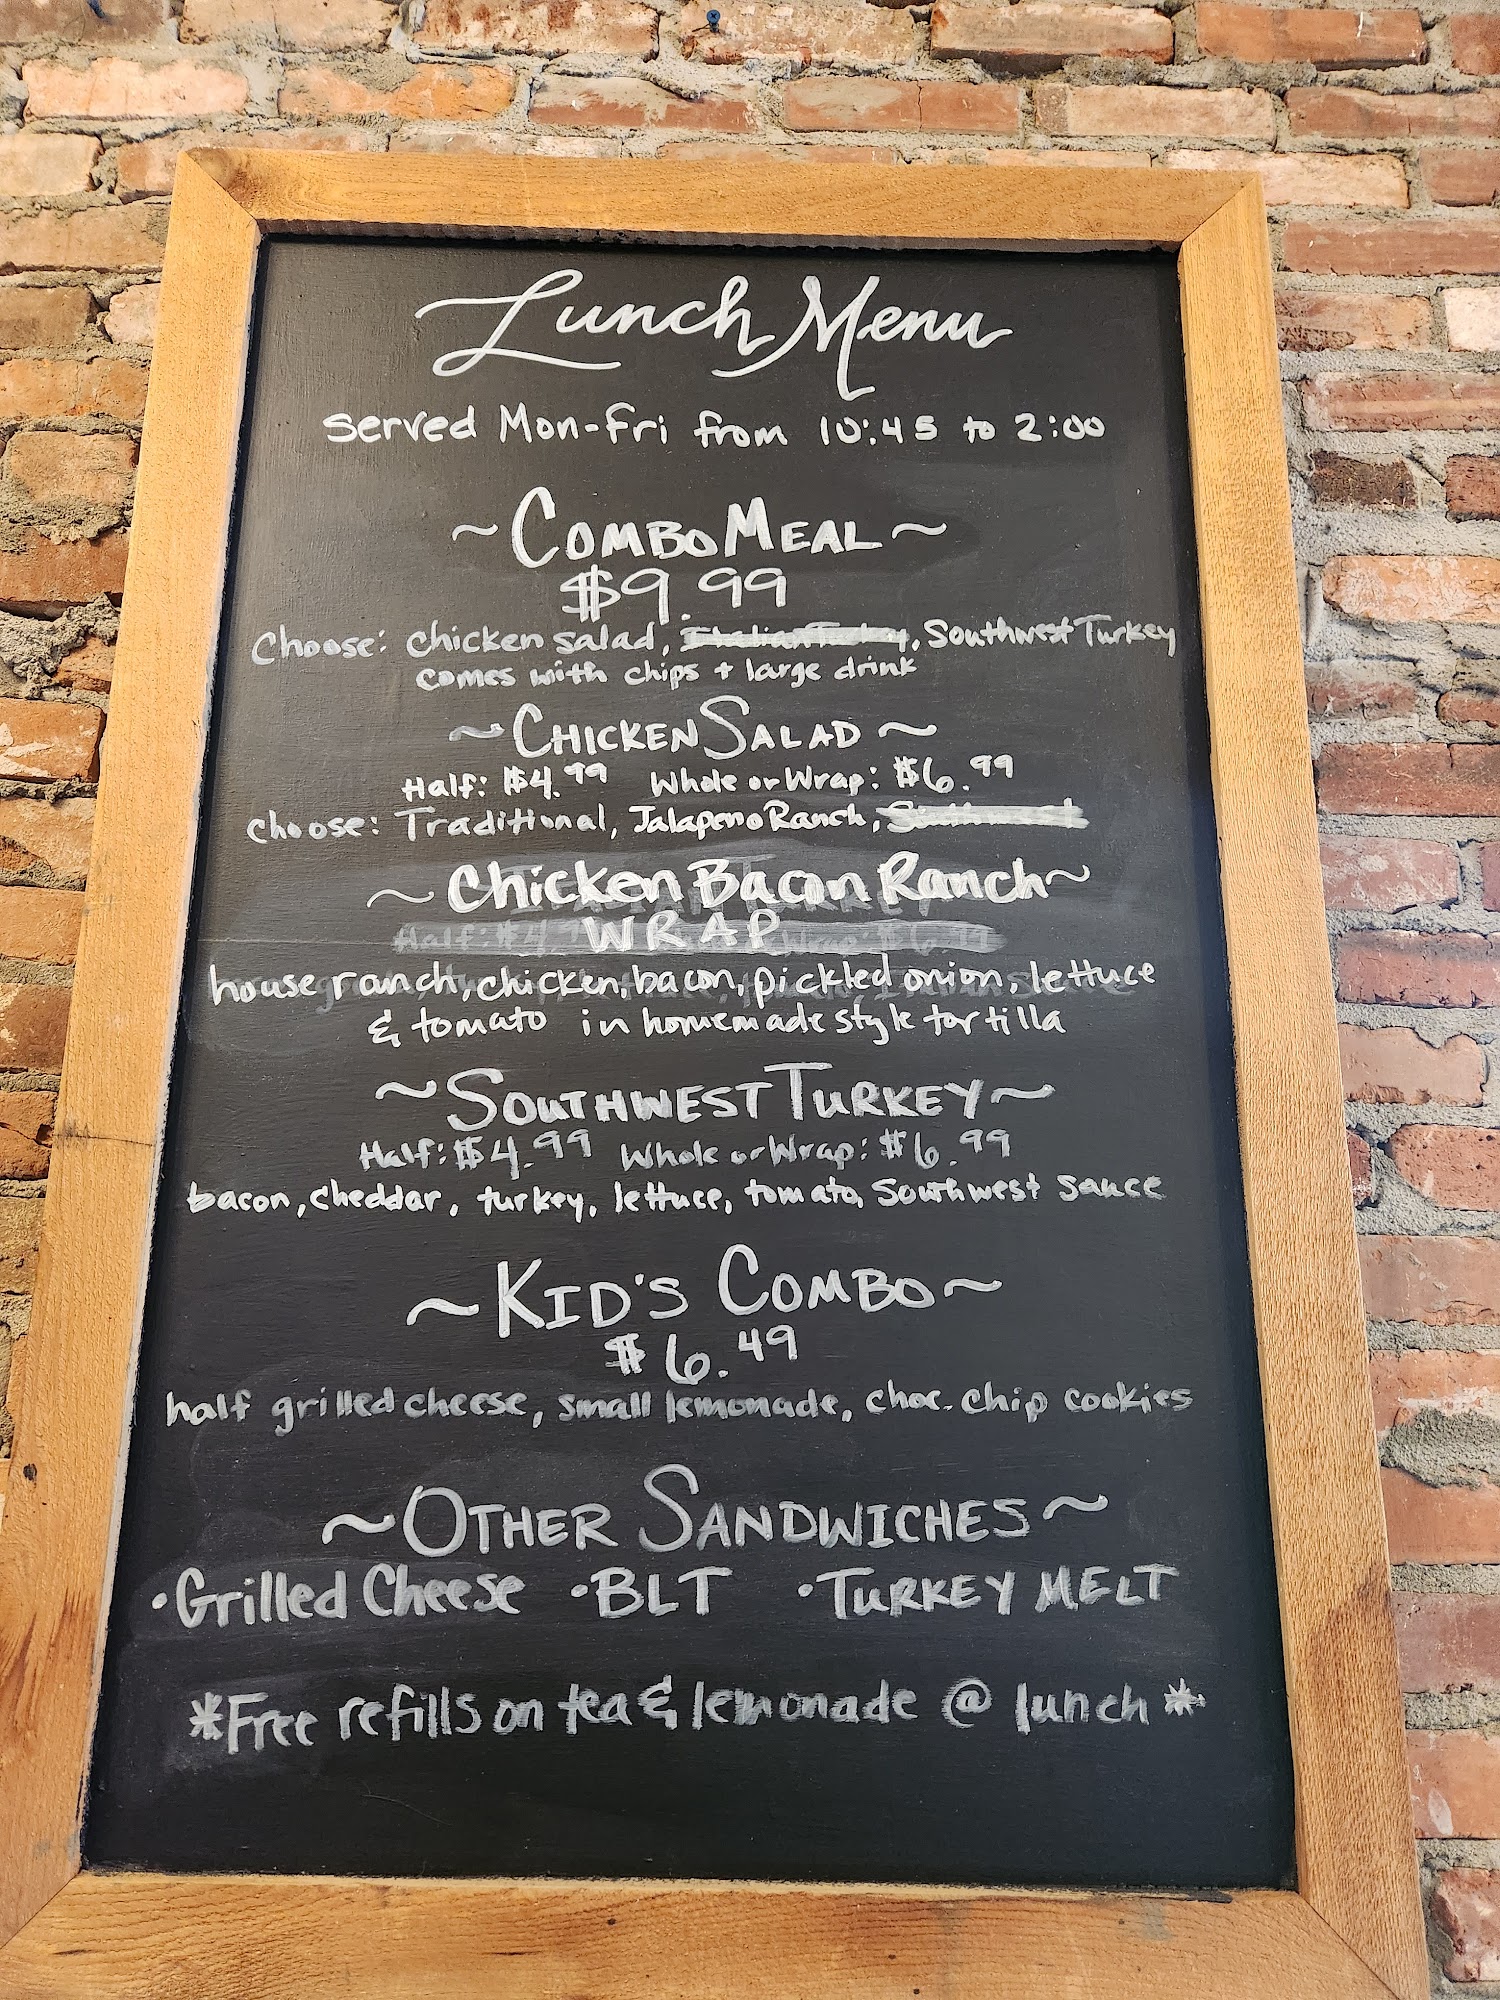 Lunch Menu
Served Mon-Fri from 10:45 to 2:00
~COMBO MEAL~
$9.99
Choose: chicken salad, Italian Turkey, Southwest Turkey
comes with chips + large drink
~CHICKEN SALAD~
Half: $4.99 Whole or Wrap: $6.99
Choose: Traditional, Jalapeno Ranch, Southwest
~Chicken Bacon Ranch~
WRAP
house ranch, chicken, bacon, pickled onion, lettuce
& tomato in homemade style tortilla
~SOUTHWEST TURKEY~
Half: $4.99 Whole or Wrap: $6.99
bacon, cheddar, turkey, lettuce, tomato, Southwest sauce
~KID'S COMBO~
$6.49
half grilled cheese, small lemonade, choc. chip cookies
~OTHER SANDWICHES~
•Grilled Cheese •BLT •TURKEY MELT
*Free refills on tea & lemonade @ lunch*